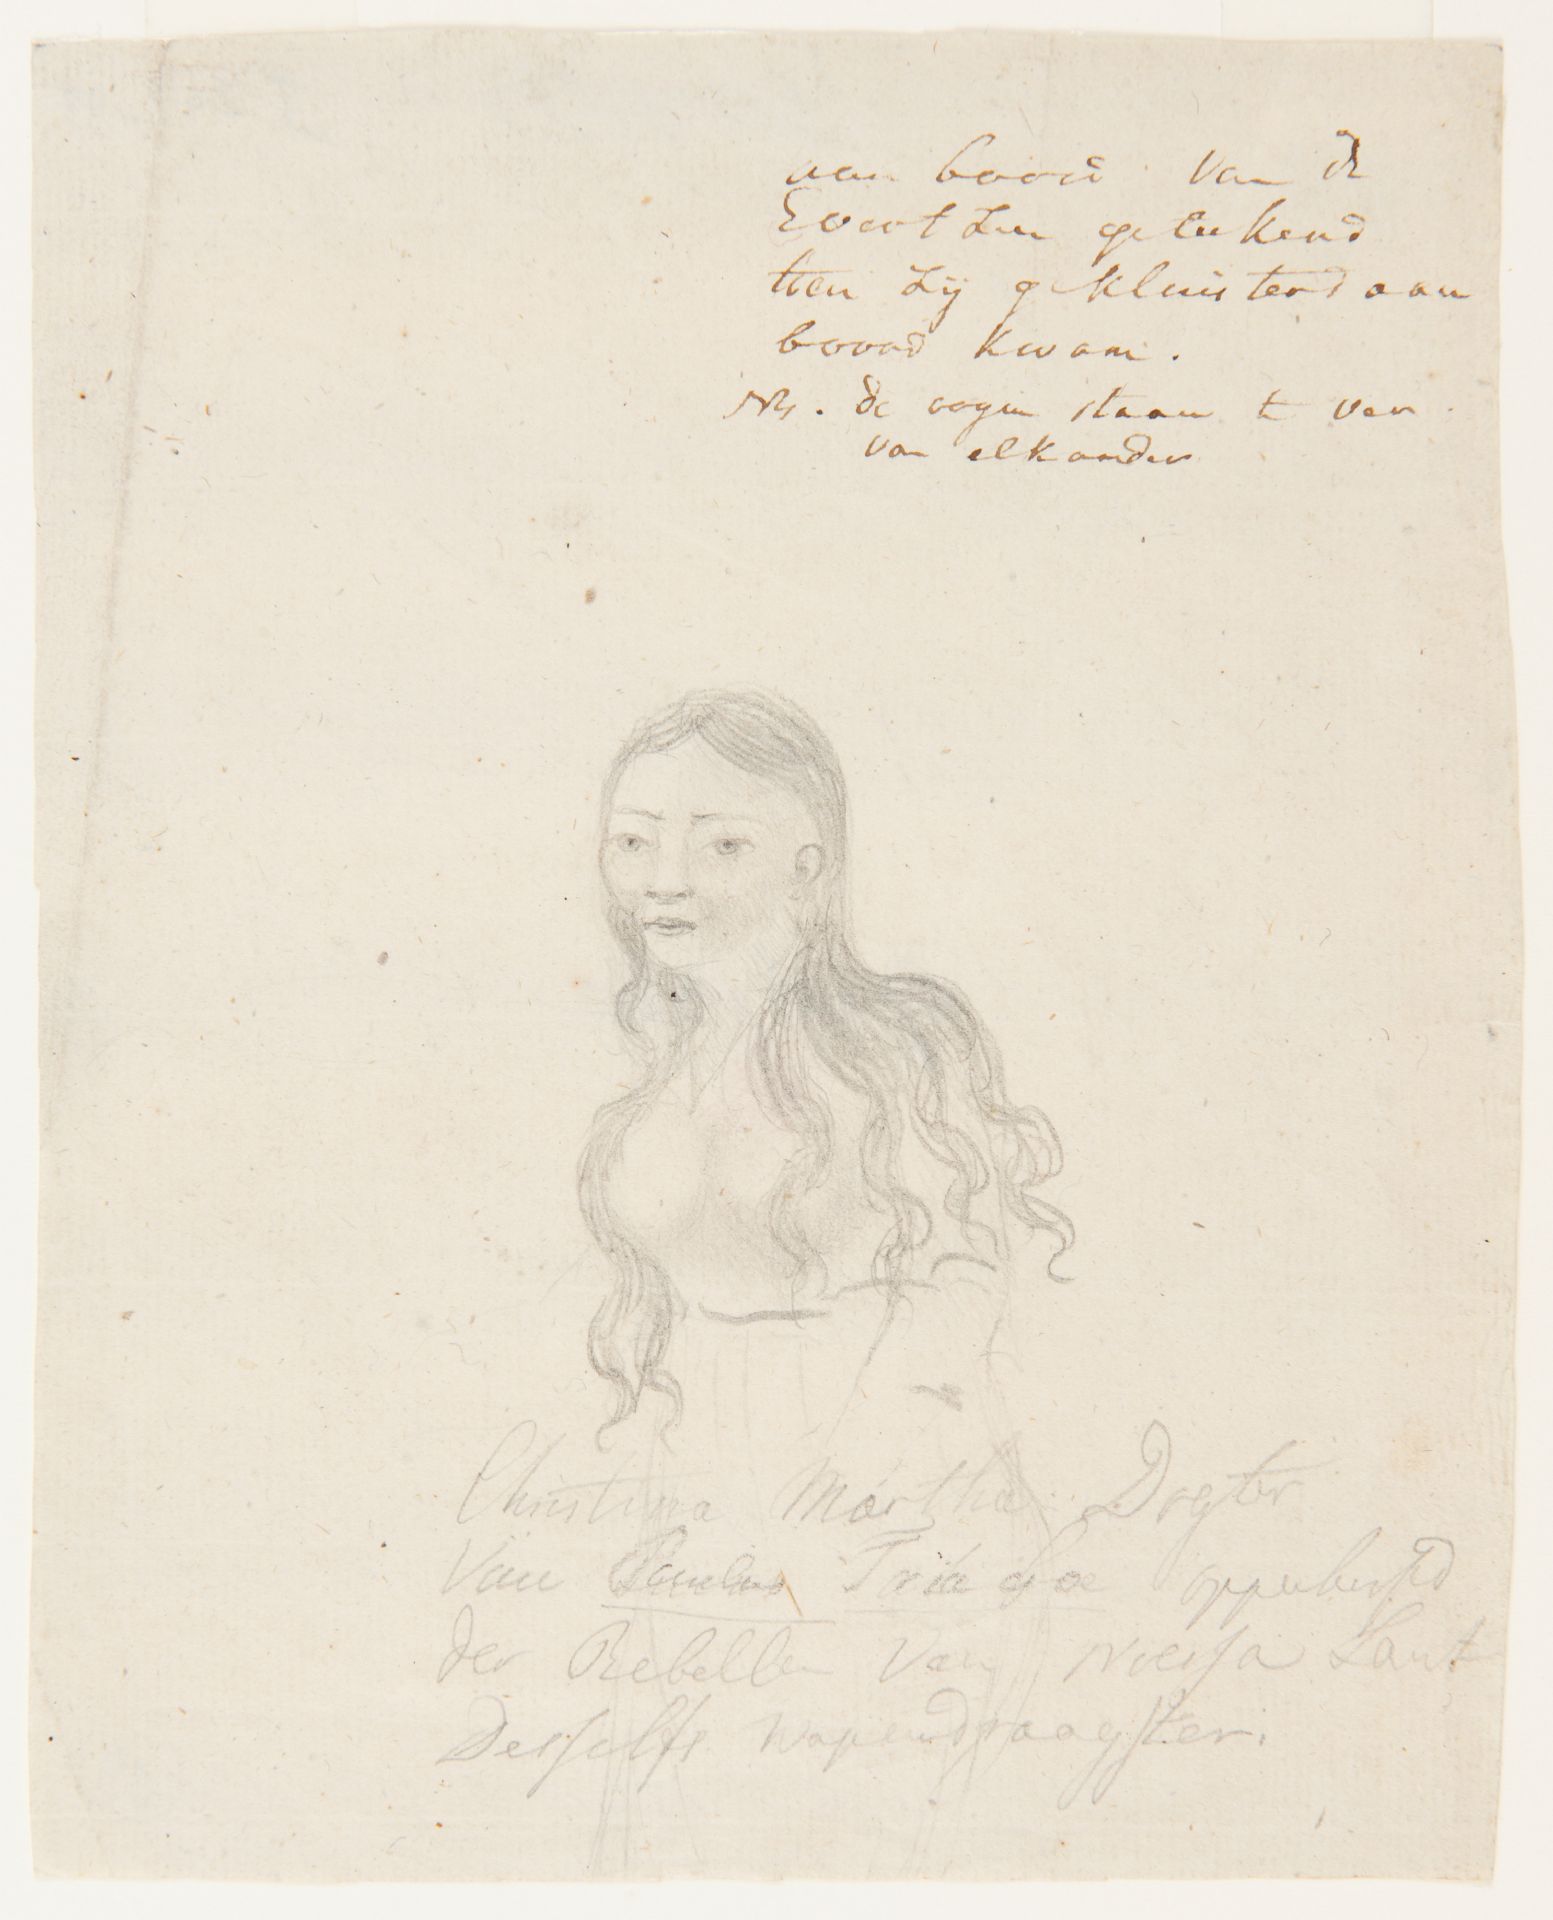 aan boord van de
Evertzen geteekend
toen zij gekluisterd aan
boord kwam.
NB. de oogen staan te ver
van elkander
Christina Martha Dogter
Van Paulus Toria goe opperhoofd
der Rebellen van Noessa Laut
Desselfs wapendraagster.